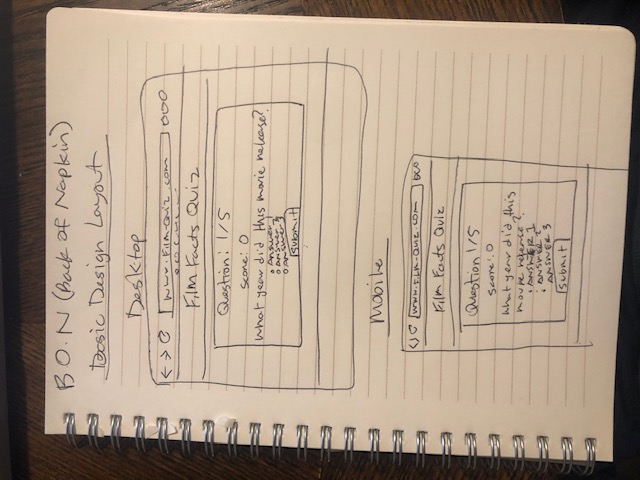 B.O.N (Back of Napkin)
Basic Design Layout
Desktop
www.Film-Quiz.com
Film Facts Quiz
Question: 1/5
score: 0
What year did this movie release?
Answer 1
Answer 2
Answer 3
Submit
Mobile
www.Film-Quiz.com
Film Facts Quiz
Question 1/5
score: 0
What year did this
movie release?
ANSWER 1
ANSWER 2
ANSWER 3
Submit